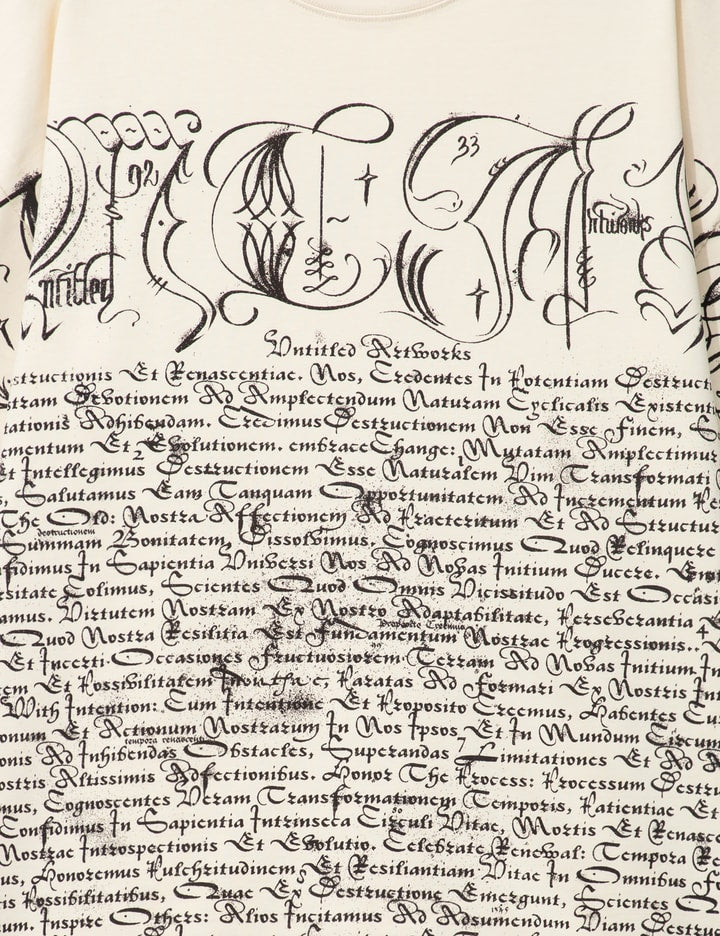 92
33
ntitled
Artworks
Untitled Artworks
structionis Et Renascentiae. Nos, Credentes In Potentiam Destructi
stram Devotionem Ad Amplectendum Naturam Cyclicalis Existent
tationis Adhibendam. Credimus Destructionem Non Esse Finem, S
ementum Et Evolutionem. embrace Change: Mutatam Amplectimur
t Intellegimus Destructionem Esse Naturalem Vim Transformati
s, Salutamus Eam Tanquam Opportunitatem Ad Incrementum Pe
The Old: Nostra Affectionem Ad Praeteritum Et Ad Structur
destructionem
Summam Bonitatem Dissolvimus. Cognoscimus Quod Relinquere
fidimus In Sapientia Universi Nos Ad Novas Initium Ducere.
rsitate Colimus, Scientes Quod Omnis Vicissitudo Est Occasi
amus. Virtutem Nostram Ex Nostro Adaptabilitate, Perseverantia
Quod Nostra Resilitia Est Fundamentum Nostrae Progressionis.. 4
Et Incerti Occasiones Fructuosiorem Terram Ad Novas Initium In
em Et Possivilitatem Paratas Ad Formari Ex Nostris In
With Intention: Cum Intentione Et Proposito Creemus, Habentes Cu
onum Et Actionum Nostrarum In Nos Ipsos Et In Mundum Circum
tempora renascenti
onis Ad Inhibendas Obstacles, Superandas 7 Limitationes Et Ad
ostris Altissimis Adfectionibus. Honor The Process: Processum Destru
mus, Cognoscentes Veram Transformationem Temporis, Patientiae Et
Confidimus In Sapientia Intrinseca Circuli Vitae, Mortis Et Renasc
Nostrae Introspectionis Et Evolutio. Celebrate Renewal: Tempora Re
us, Honoremus Pulchritudinem Et Resiliantiam Vitae In Omnibus F
is Possibilitatibus, Quae Ex Destructione Emergunt, Scientes
um. Inspire Others: Alios Incitamus Ad Adsumendum Viam Destru